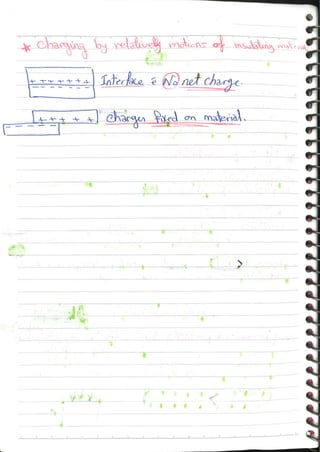 * Charging by relatively motions of insulating material
+ + + + + + +
- - - - - - -
Interface = No net charge.
+ + + + +
- - - - -
Charges fixed on material.